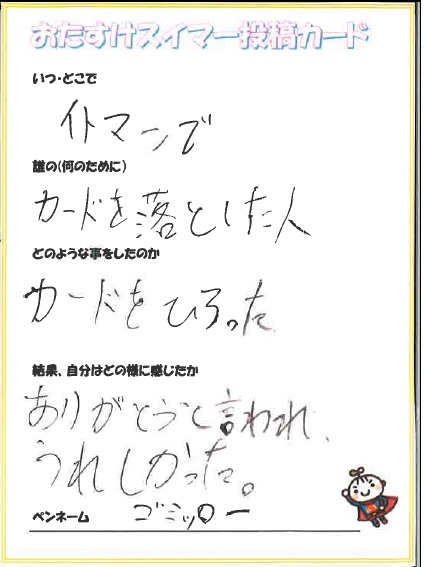 おたすけスイマー投稿カード
いつ・どこで
イトマンで
誰の(何のために)
カードを落とした人
どのような事をしたのか
カードをひろった
結果、自分はどの様に感じたか
ありがとうと言われ、
うれしかった。
ペンネーム ゴミッロー